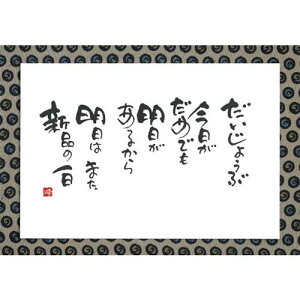 だいじょうぶ
今日が
だめでも
明日が
あるから
明日はまた
新品の一日